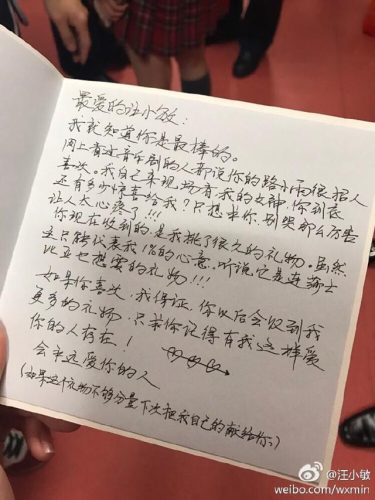 最爱的汪小敏:
我就知道你是最棒的。
网上看过音乐剧的人都说你的路小雨很招人
喜欢。我自己来现场看,我的女神,你到底
还有多少惊喜给我?只想求你,别哭那么厉害
让人太心疼了!!!
你现在收到的是我挑了很久的礼物,虽然
这只能代表我1%的心意,听说它是连瑜士
比亚也想要的礼物!!!
如果你喜欢,我保证,你以后会收到我
更多的礼物,只求你记得有我这样爱
你的人存在!
会永远爱你的人
(如果这个礼物不够分量下次把我自己的献给你:)
@汪小敏
weibo.com/wxmin